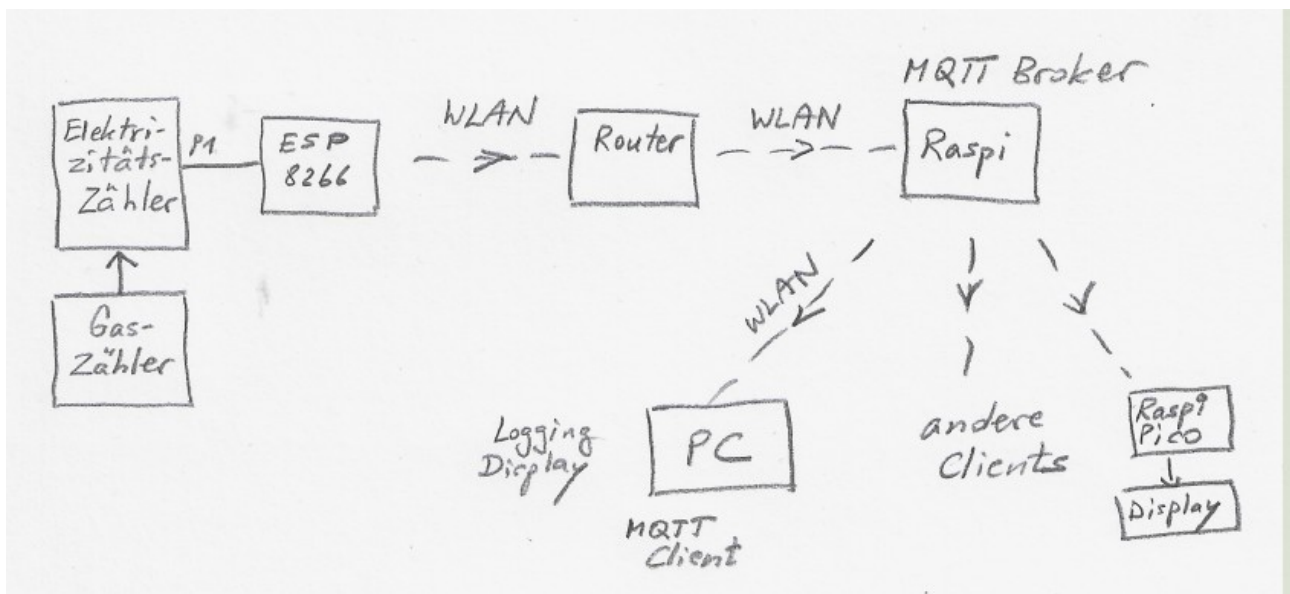 MQTT Broker
Elektri-
zitäts-
Zähler
P1
ESP
8266
WLAN
Router
WLAN
Raspi
Gas-
Zähler
WLAN
Logging
Display
PC
MQTT
Client
andere
Clients
Raspi
Pico
Display